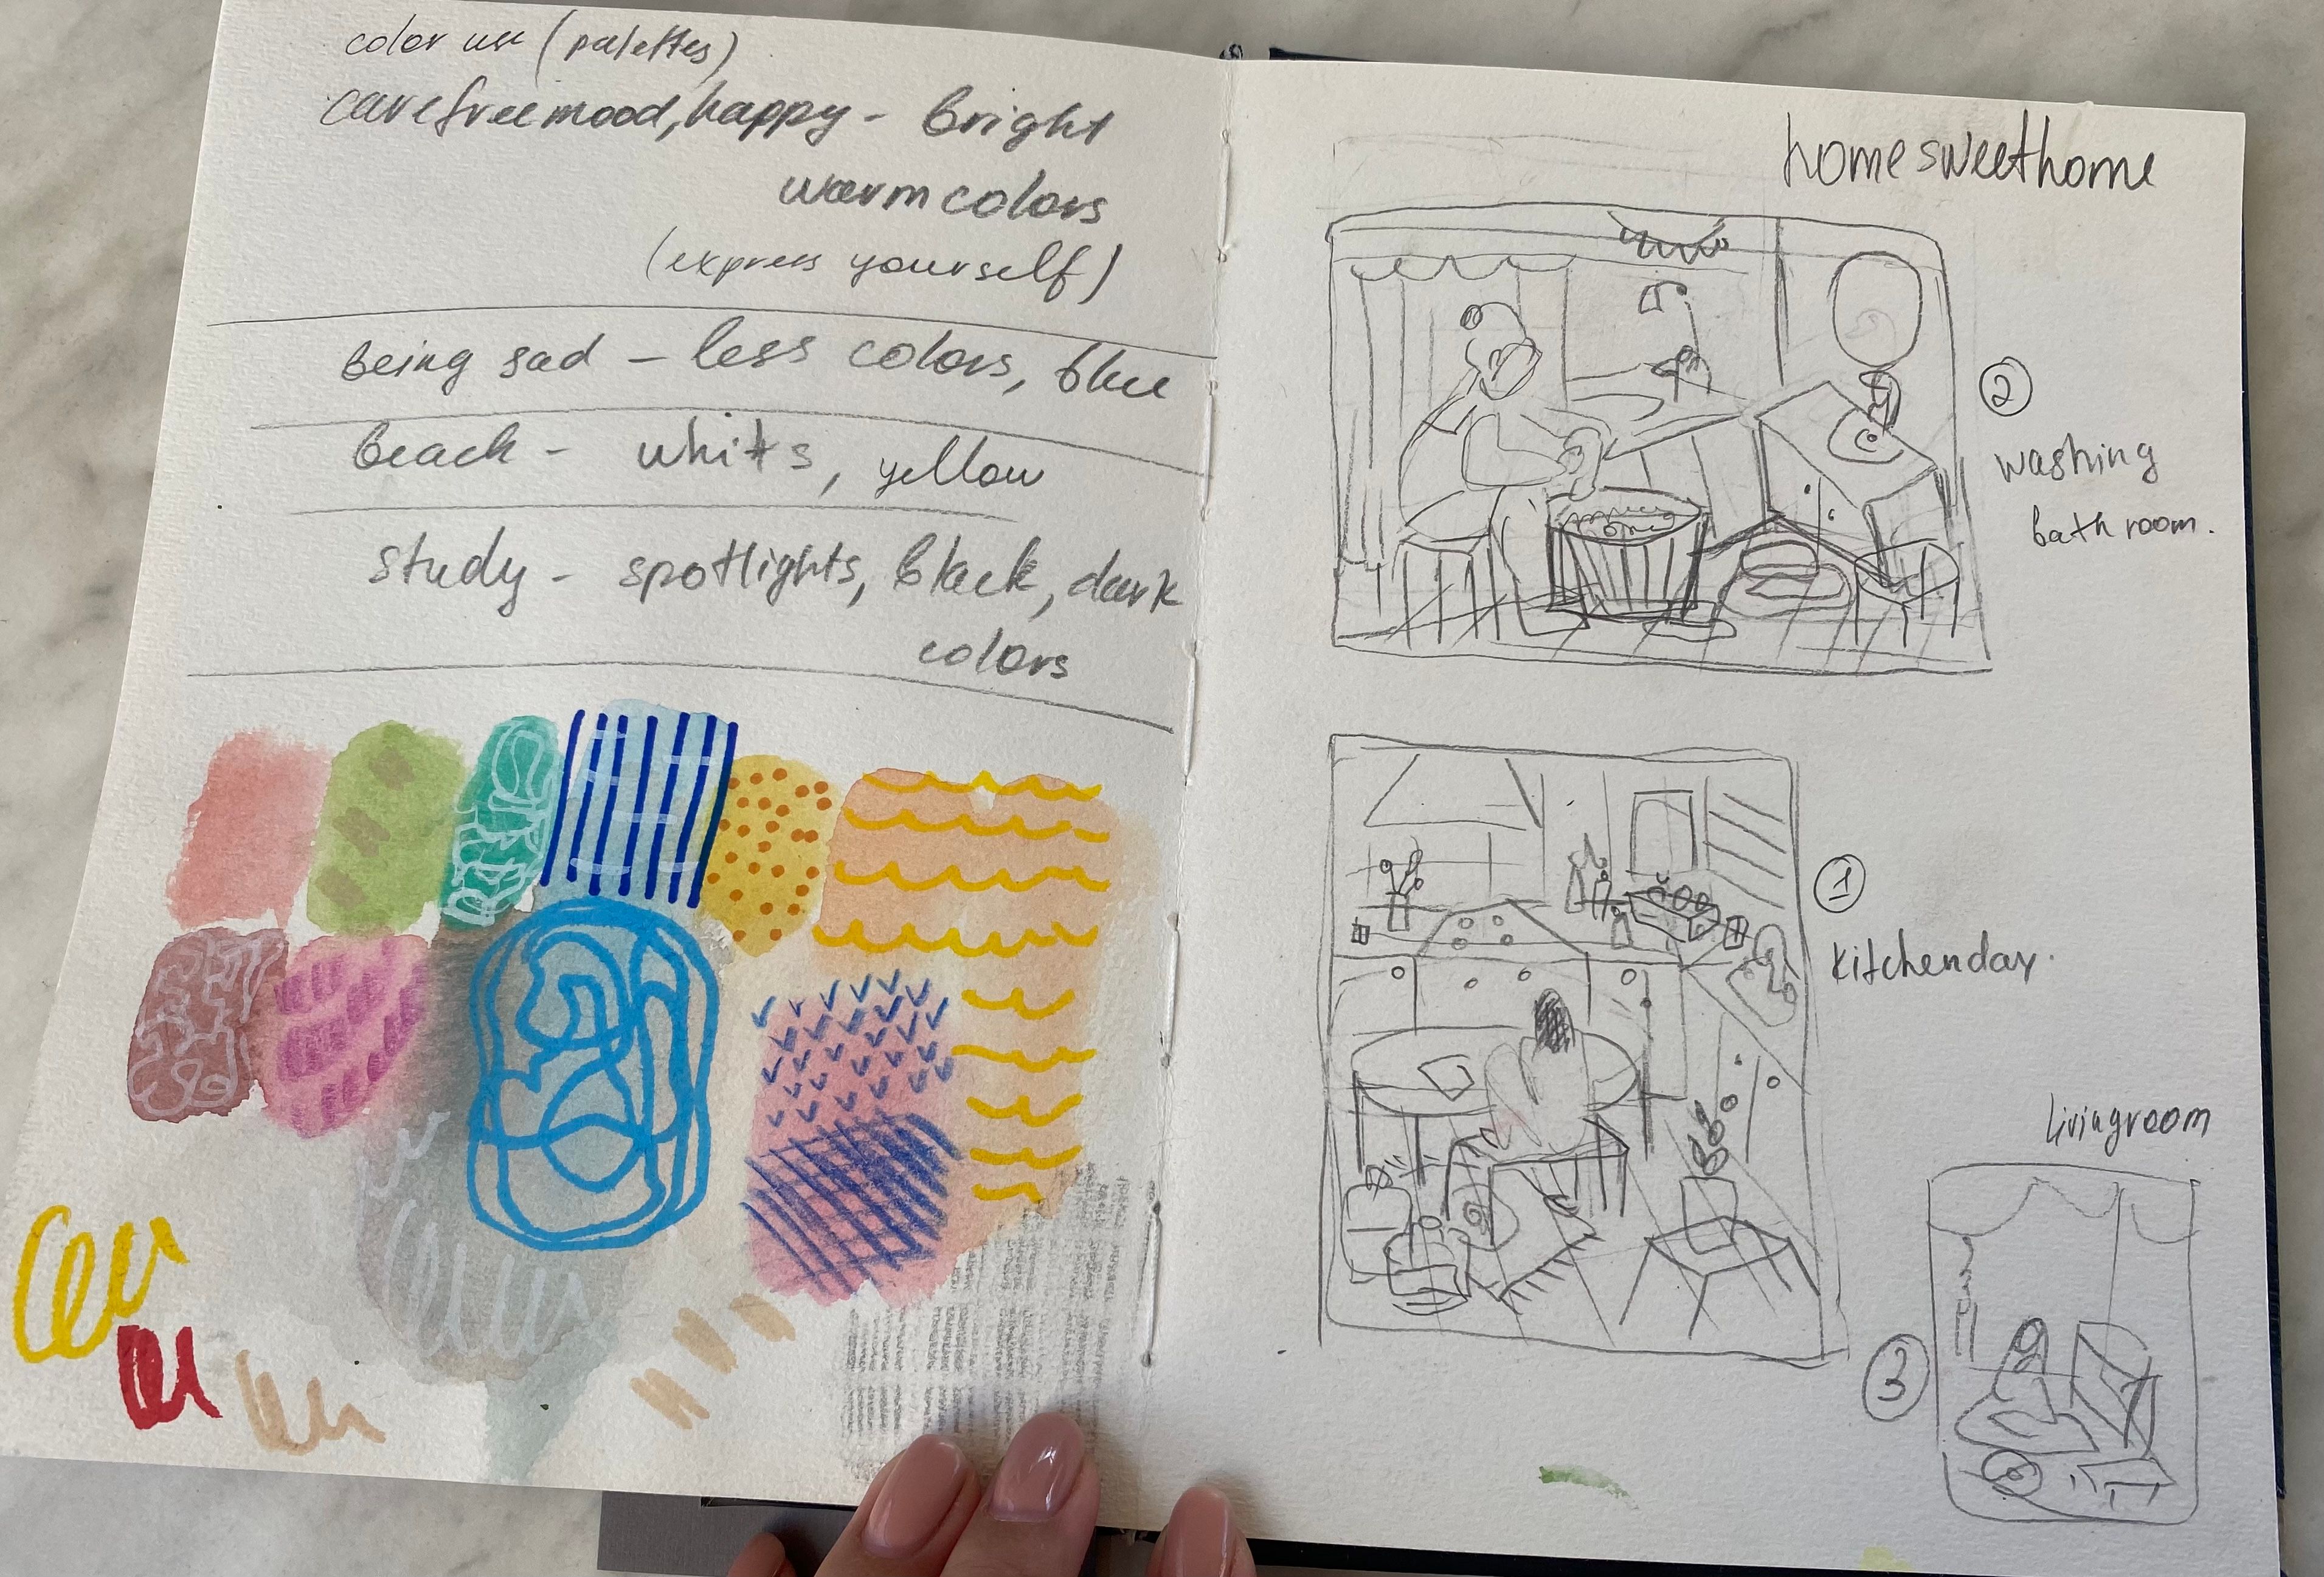 color use (palettes)
carefree mood, happy - bright
warm colors
(express yourself)
being sad - less colors, blue
beach - whites, yellow
study - spotlights, black, dark
colors
home sweet home
2
washing
bathroom.
1
kitchen day.
livingroom
3